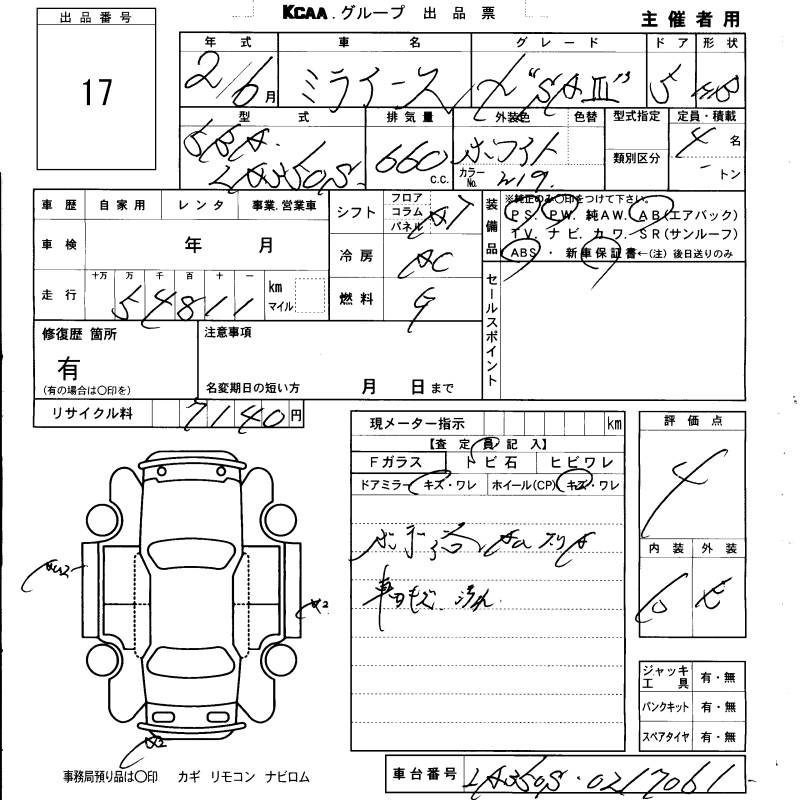 KCAA.グループ 出品票
主催者用
出品番号
17
年式 車名 グレード ドア 形状
2/6月 ミライース X "SAⅢ" 5 HB
型式 排気量 外装色 色替 型式指定 定員・積載
5BA. LA350S. 660 c.c. ホワイト カラーNo. W19. 類別区分 4名
-トン
車歴 自家用 レンタ 事業.営業車
車検 年 月
走行 十万 万 千 百 十 一
54811 km マイル
シフト フロア コラム パネル AT
冷房 AC
燃料 G
装備品 ※純正のみ○印をつけて下さい。
PS. PW. 純AW. AB(エアバック)
TV. ナビ. カワ. SR(サンルーフ)
ABS ・ 新車保証書←(注)後日送りのみ
セールスポイント
修復歴 箇所
有
(有の場合は○印を)
注意事項
名変期日の短い方 月 日まで
リサイクル料 7140円
現メーター指示 km
【査定員記入】
Fガラス トビ石 ヒビワレ
ドアミラー キズ・ワレ ホイール(CP) キズ・ワレ
車内キズ. 汚れ.
評価点
4
内装 外装
A2
A2
ジャッキ工具 有・無
パンクキット 有・無
スペアタイヤ 有・無
事務局預り品は○印 カギ リモコン ナビロム
車台番号 LA350S-0217061-